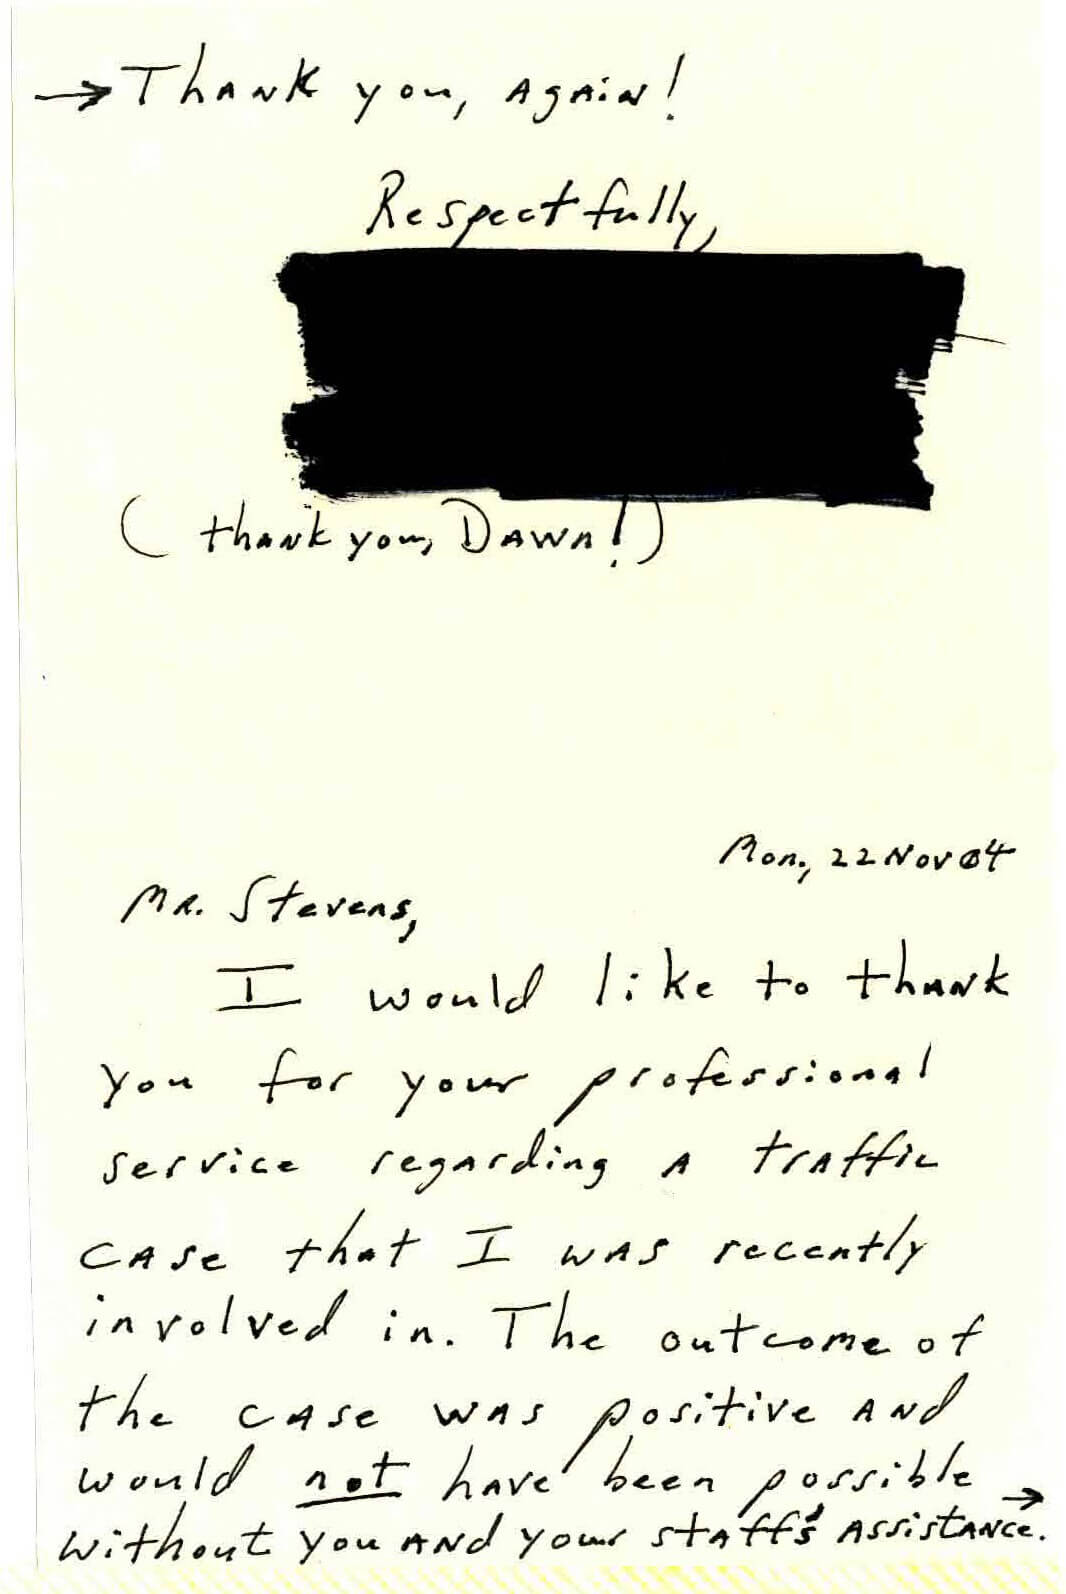 → Thank you, again!
Respectfully,
(thank you, Dawn!)
Mon, 22 Nov 04
Mr. Stevens,
I would like to thank
you for your professional
service regarding a traffic
case that I was recently
involved in. The outcome of
the case was positive and
would not have been possible →
without you and your staff's assistance.